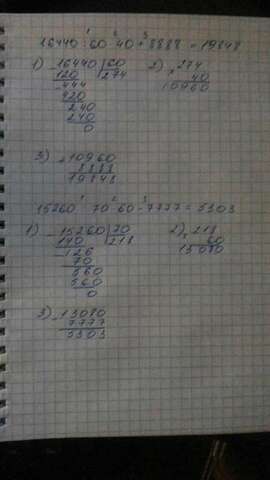 16440 : 60 · 40 + 8888 = 19848
1) 16440 | 60   2) 274
120 | 274   × 40
444   10960
420
240
240
0
3) + 10960
8888
19848
15260 : 70 · 60 - 7777 = 5303
1) 15260 | 70   2) 218
140 | 218   × 60
126   13080
70
560
560
0
3) - 13080
7777
5303